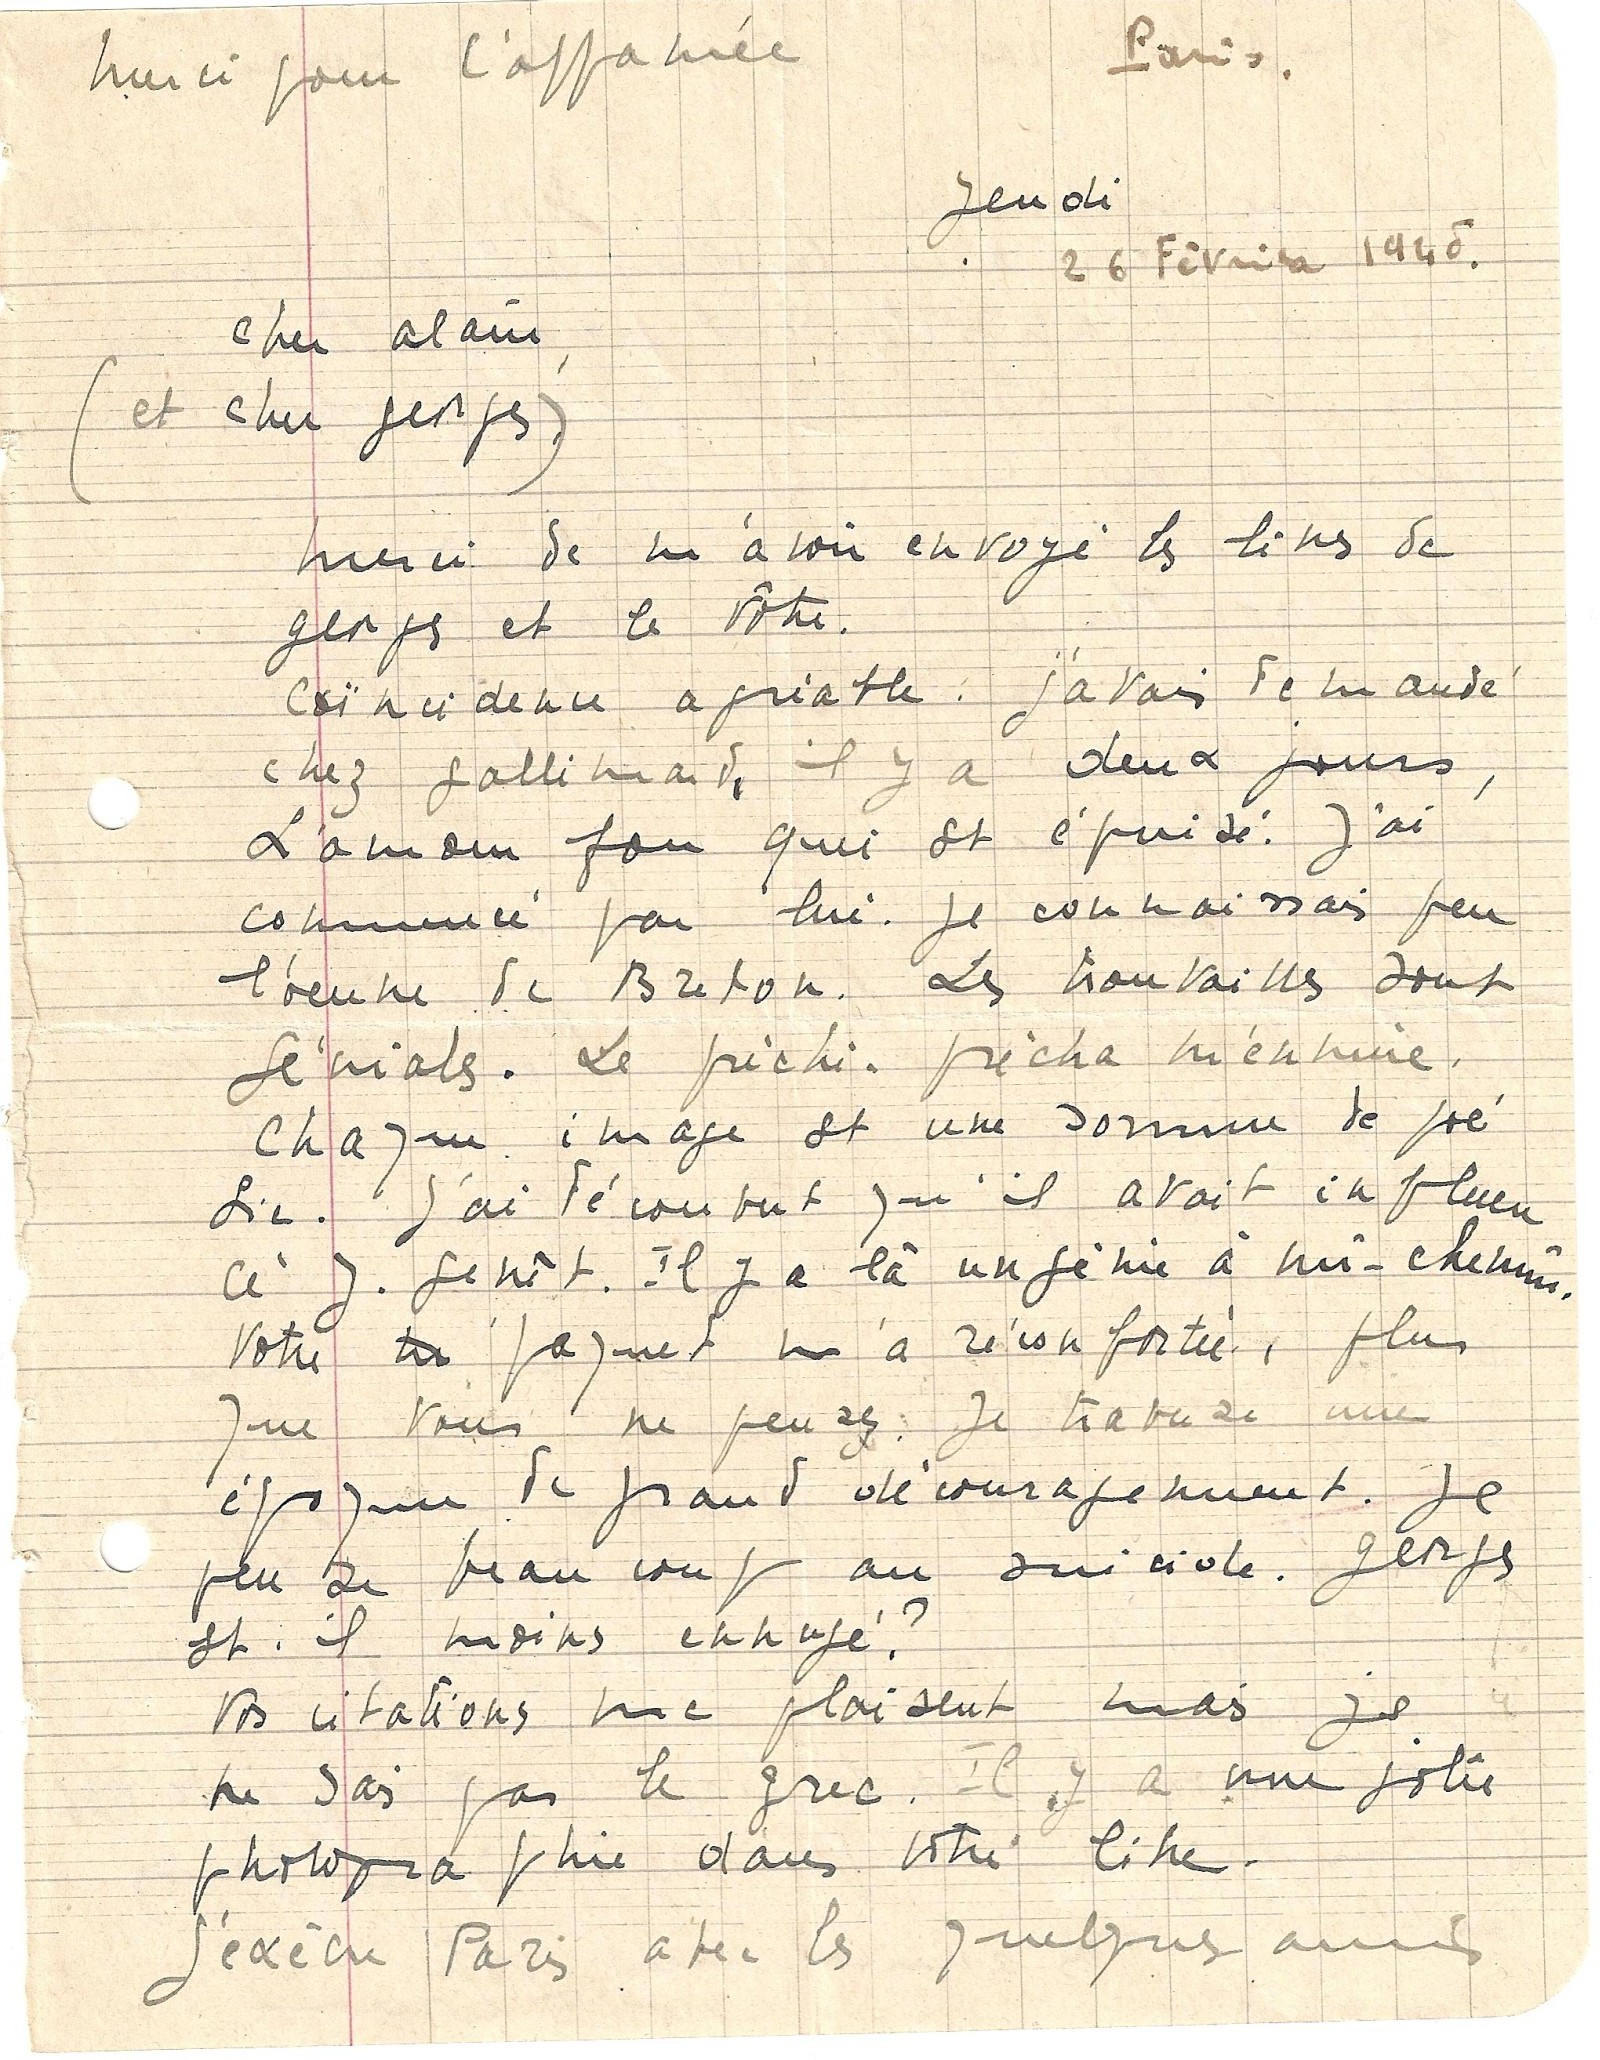 merci pour l'affamée
Paris.
Jeudi
26 Février 1948.
cher alain,
(et cher georges)
merci de m'avoir envoyé les livres de
georges et le vôtre.
Coïncidence agréable : j'avais demandé
chez gallimard, il y a deux jours,
L'amour fou qui est épuisé. J'ai
commencé par lui. Je connaissais peu
l'œuvre de Breton. Les trouvailles sont
géniales. Le prêchi-prêcha m'ennuie.
Chaque image est une somme de poé
sie. J'ai découvert qu'il avait influen
cé J. genêt. Il y a là un génie à mi-chemin.
Votre paquet m'a réconfortée, plus
que vous ne pensez. Je traverse une
époque de grand découragement. Je
pense beaucoup au suicide. georges
est-il moins ennuyé ?
Vos citations me plaisent mais je
ne sais pas le grec. Il y a une jolie
photographie dans votre livre.
J'exècre Paris avec les quelques amis